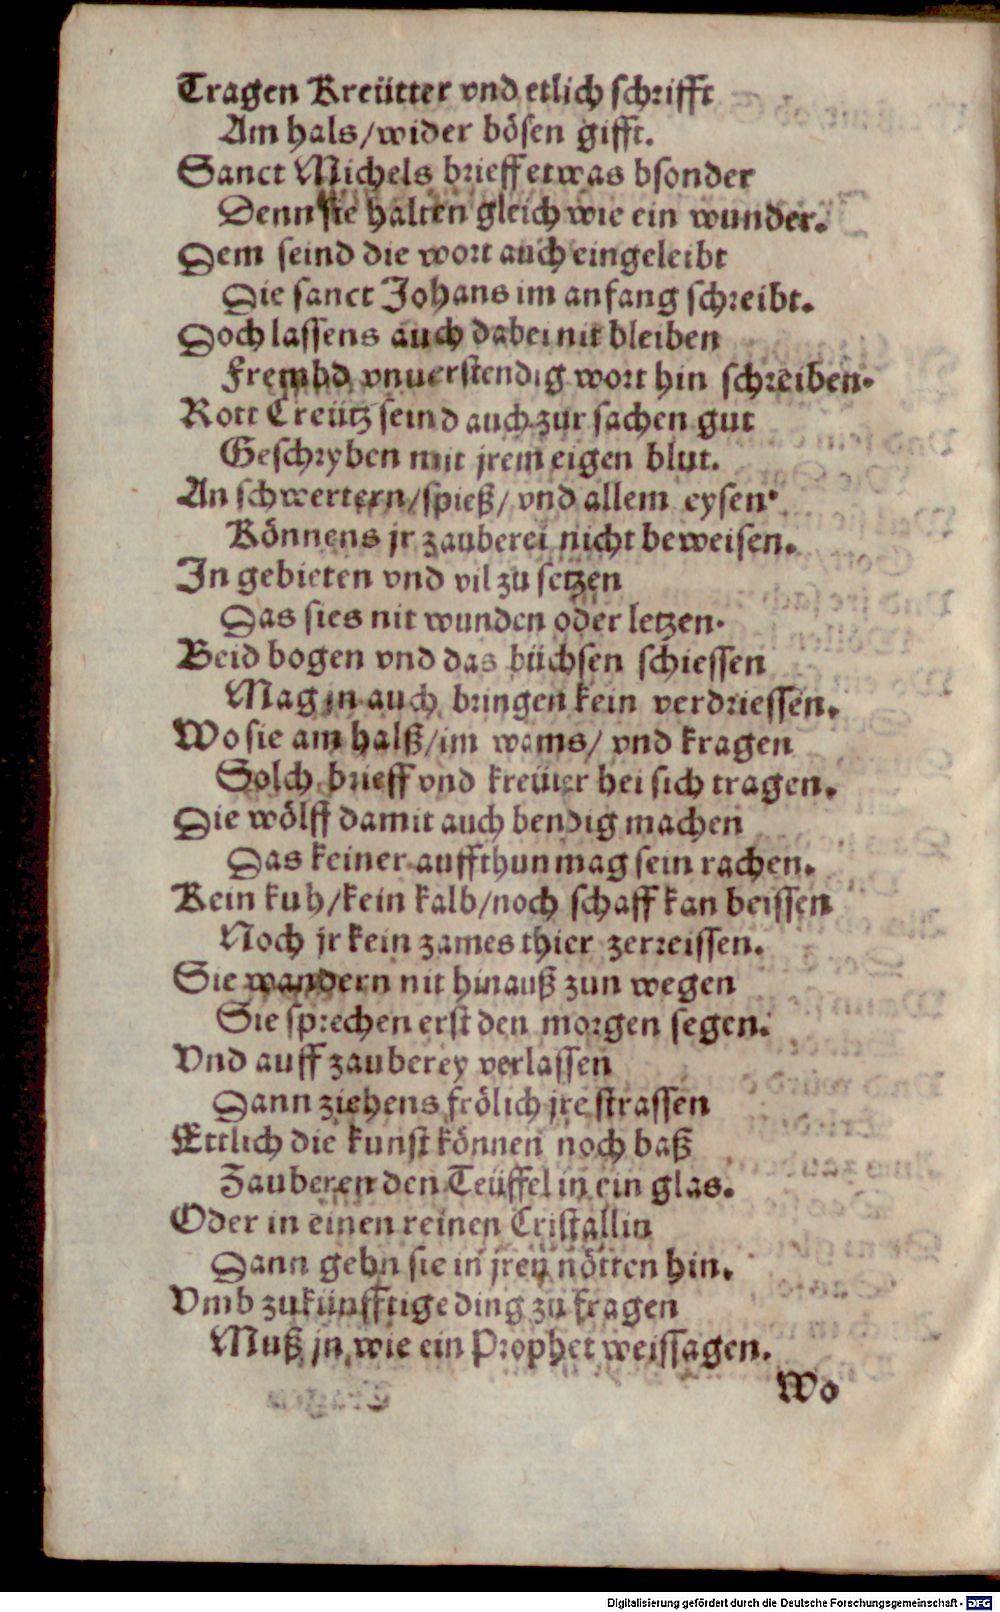 Tragen Kreütter vnd etlich schrifft
Am hals/wider bösen gifft.
Sanct Michels brieff etwas bsonder
Denn sie halten gleich wie ein wunder.
Dem seind die wort auch eingeleibt
Die sanct Johans im anfang schreibt.
Doch lassens auch dabei nit bleiben
Frembd vnuerstendig wort hin schreiben.
Rott Creütz seind auch zur sachen gut
Geschryben mit jrem eigen blut.
An schwertern/spieß/ vnd allem eysen.
Könnens jr zauberei nicht beweisen.
In gebieten vnd vil zu setzen
Das sies nit wunden oder letzen.
Beid bogen vnd das büchsen schiessen
Mag jn auch bringen kein verdriessen.
Wo sie am halß/im wams/ vnd kragen
Solch brieff vnd kreüter bei sich tragen.
Die wölff damit auch bendig machen
Das keiner auffthun mag sein rachen.
Kein kuh/kein kalb/noch schaff kan beissen
Noch jr kein zames thier zerreissen.
Sie wandern nit hinauß zun wegen
Sie sprechen erst den morgen segen.
Vnd auff zauberey verlassen
Dann ziehens frölich jre strassen
Ettlich die kunst können noch baß
Zauberen den Teüffel in ein glas.
Oder in einen reinen Cristallin
Dann gehn sie in jren nötten hin.
Vmb zukünfftige ding zu fragen
Muß jn wie ein Prophet weissagen.
Wo
Digitalisierung gefördert durch die Deutsche Forschungsgemeinschaft - DFG